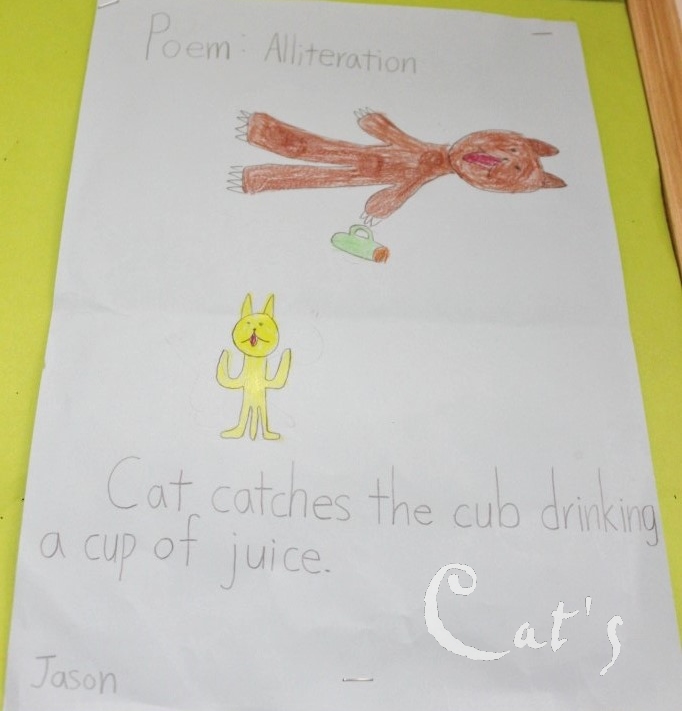 Poem: Alliteration
Cat catches the cub drinking
a cup of juice.
Cat's
Jason